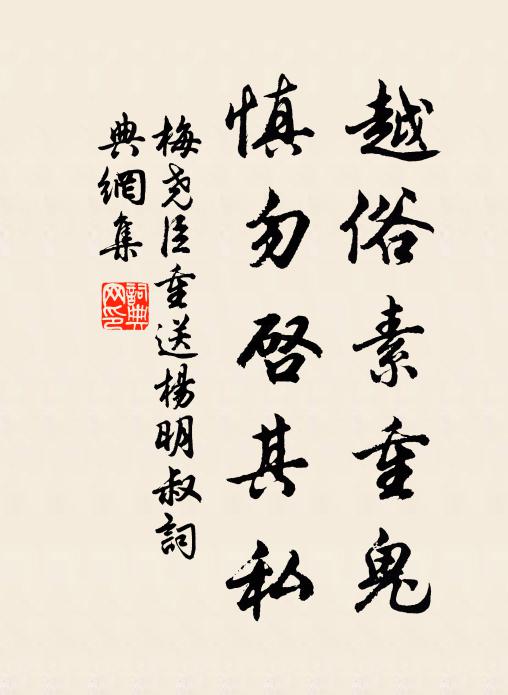 越俗素重鬼
慎勿启其私
梅尧臣重送楊明叔詞
典網集
詞典
网印